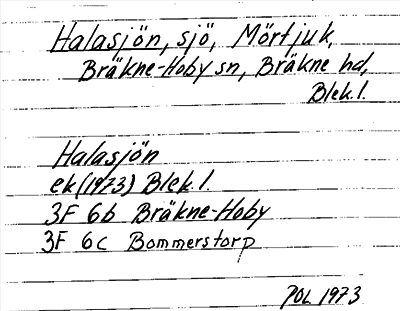 Halasjön, sjö, Mörtjuk,
Bräkne-Hoby sn, Bräkne hd,
Blek.l.
Halasjön
ek(1973) Blek.l.
3F 6b Bräkne-Hoby
3F 6c Bommerstorp
POL 1973